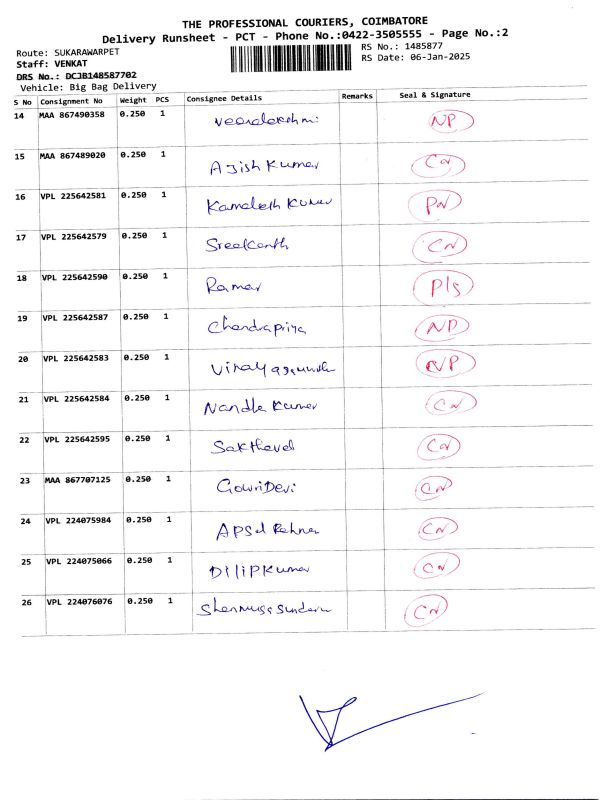 THE PROFESSIONAL COURIERS, COIMBATORE
Delivery Runsheet - PCT - Phone No.:0422-3505555 - Page No.:2
Route: SUKARAWARPET
RS No.: 1485877
Staff: VENKAT
RS Date: 06-Jan-2025
DRS No.: DCJB148587702
Vehicle: Big Bag Delivery
S No Consignment No Weight PCS Consignee Details Remarks Seal & Signature
14 MAA 867490358 0.250 1 NP
15 MAA 867489020 0.250 1 Ajish Kumar CN
16 VPL 225642581 0.250 1 Kamalesh Kumar PN
17 VPL 225642579 0.250 1 Sreekanth CN
18 VPL 225642590 0.250 1 Ramar Pls
19 VPL 225642587 0.250 1 Chandrapriya NP
20 VPL 225642583 0.250 1 NP
21 VPL 225642584 0.250 1 Nandha Kumar CN
22 VPL 225642595 0.250 1 Sakthevel CN
23 MAA 867707125 0.250 1 GowriDevi CN
24 VPL 224075984 0.250 1 CN
25 VPL 224075066 0.250 1 DilipKumar CN
26 VPL 224076076 0.250 1 Shanmuga Sundaram CN